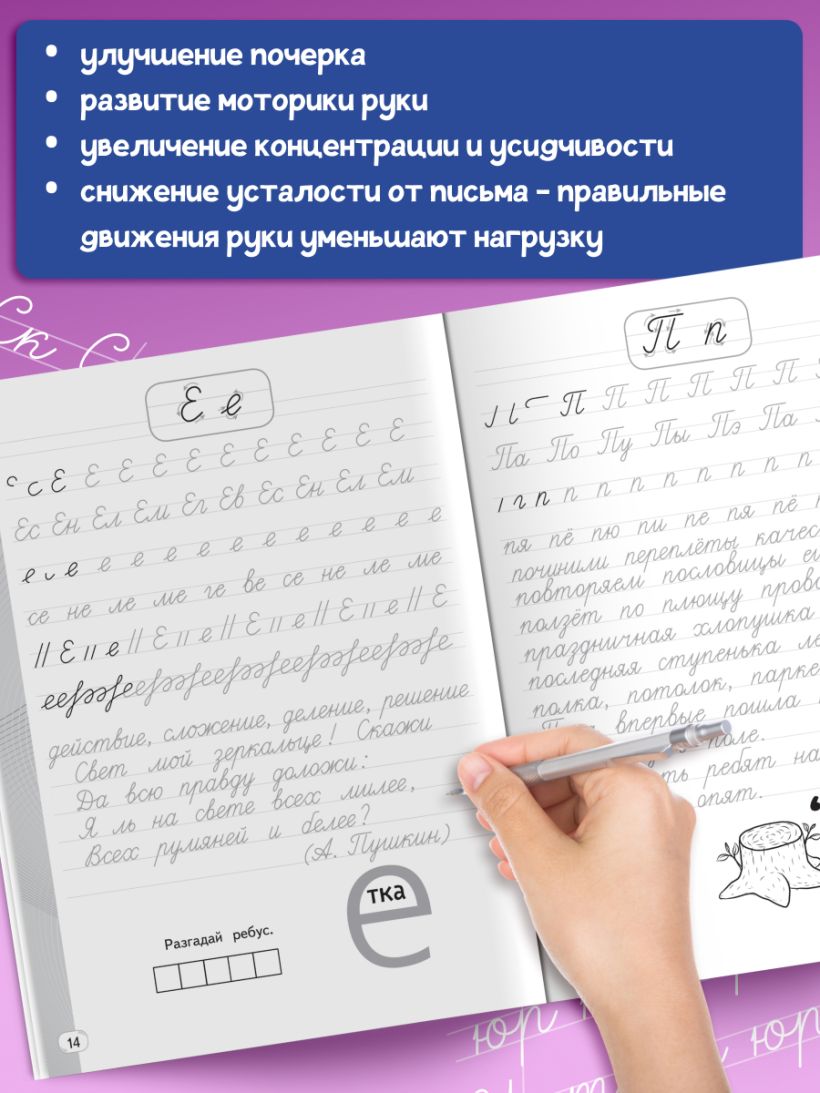 улучшение почерка
развитие моторики руки
увеличение концентрации и усидчивости
снижение усталости от письма - правильные
движения руки уменьшают нагрузку
Ск С
Е е
с с Е Е Е Е Е Е Е Е Е Е Е
Ес Ен Ел Ем Ег Ев Ес Ен Ел Ем
е е е е е е е е е е е е
се не ле ме ге ве се не ле ме
// Е // е // Е // е // Е // е // Е // е // Е
действие, сложение, деление, решение
Свет мой зеркальце! Скажи
Да всю правду доложи:
Я ль на свете всех милее,
Всех румяней и белее?
(А. Пушкин)
е
тка
Разгадай ребус.
14
П п
П П П П П П
Па По Пу Пы Пэ Па
п п п п п п п п п
пя пё пю пи пе пя пё
починили переплёты
повторяем пословицы
ползёт по плющу
праздничная хлопушка
последняя ступенька
полка, потолок,
впервые пошла
поле.
ребят на
опят.
юр
юр